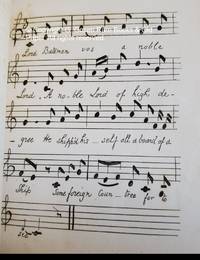 Lord Bateman vos a noble
Lord. A no-ble Lord of high de-
- gree He shipp'd his _ self all a board of a
Ship Some foreign Coun _ tree for to
see